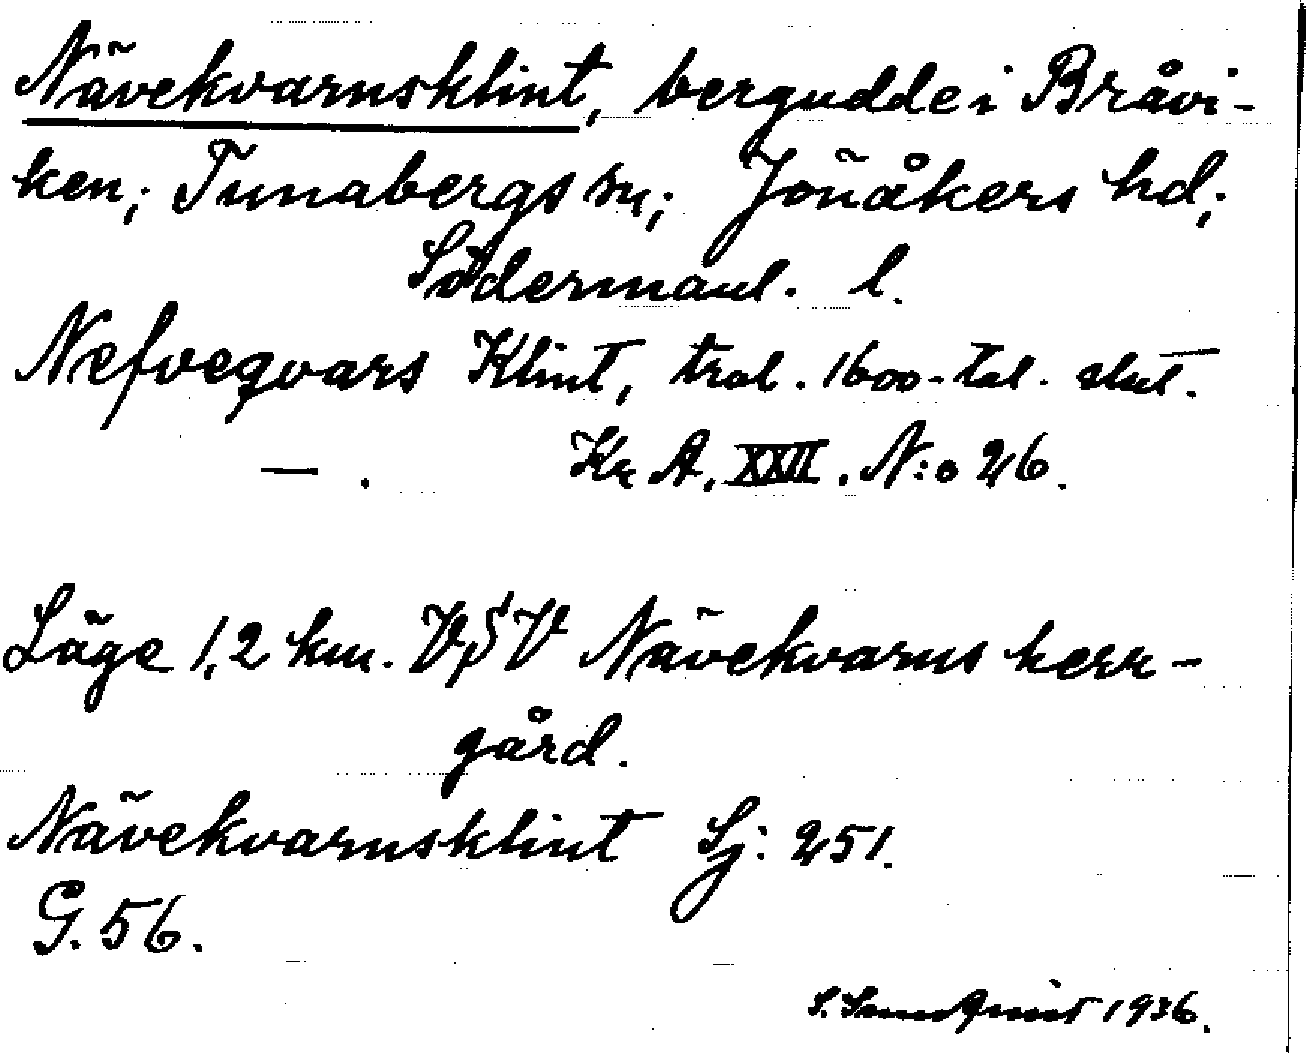 Nävekvarnsklint, bergudde i Bråvi-
ken; Tunabergs sn; Jönåkers hd;
Södermanl. l.
Nefveqvars Klint, trol. 1600-tal. slut.
— . Kr A. XXII. N:o 26.
Läge 1,2 km. VSV Nävekvarns herr-
gård.
Nävekvarnsklint Sj: 251.
G. 56.
S. Sundqvist 1936.